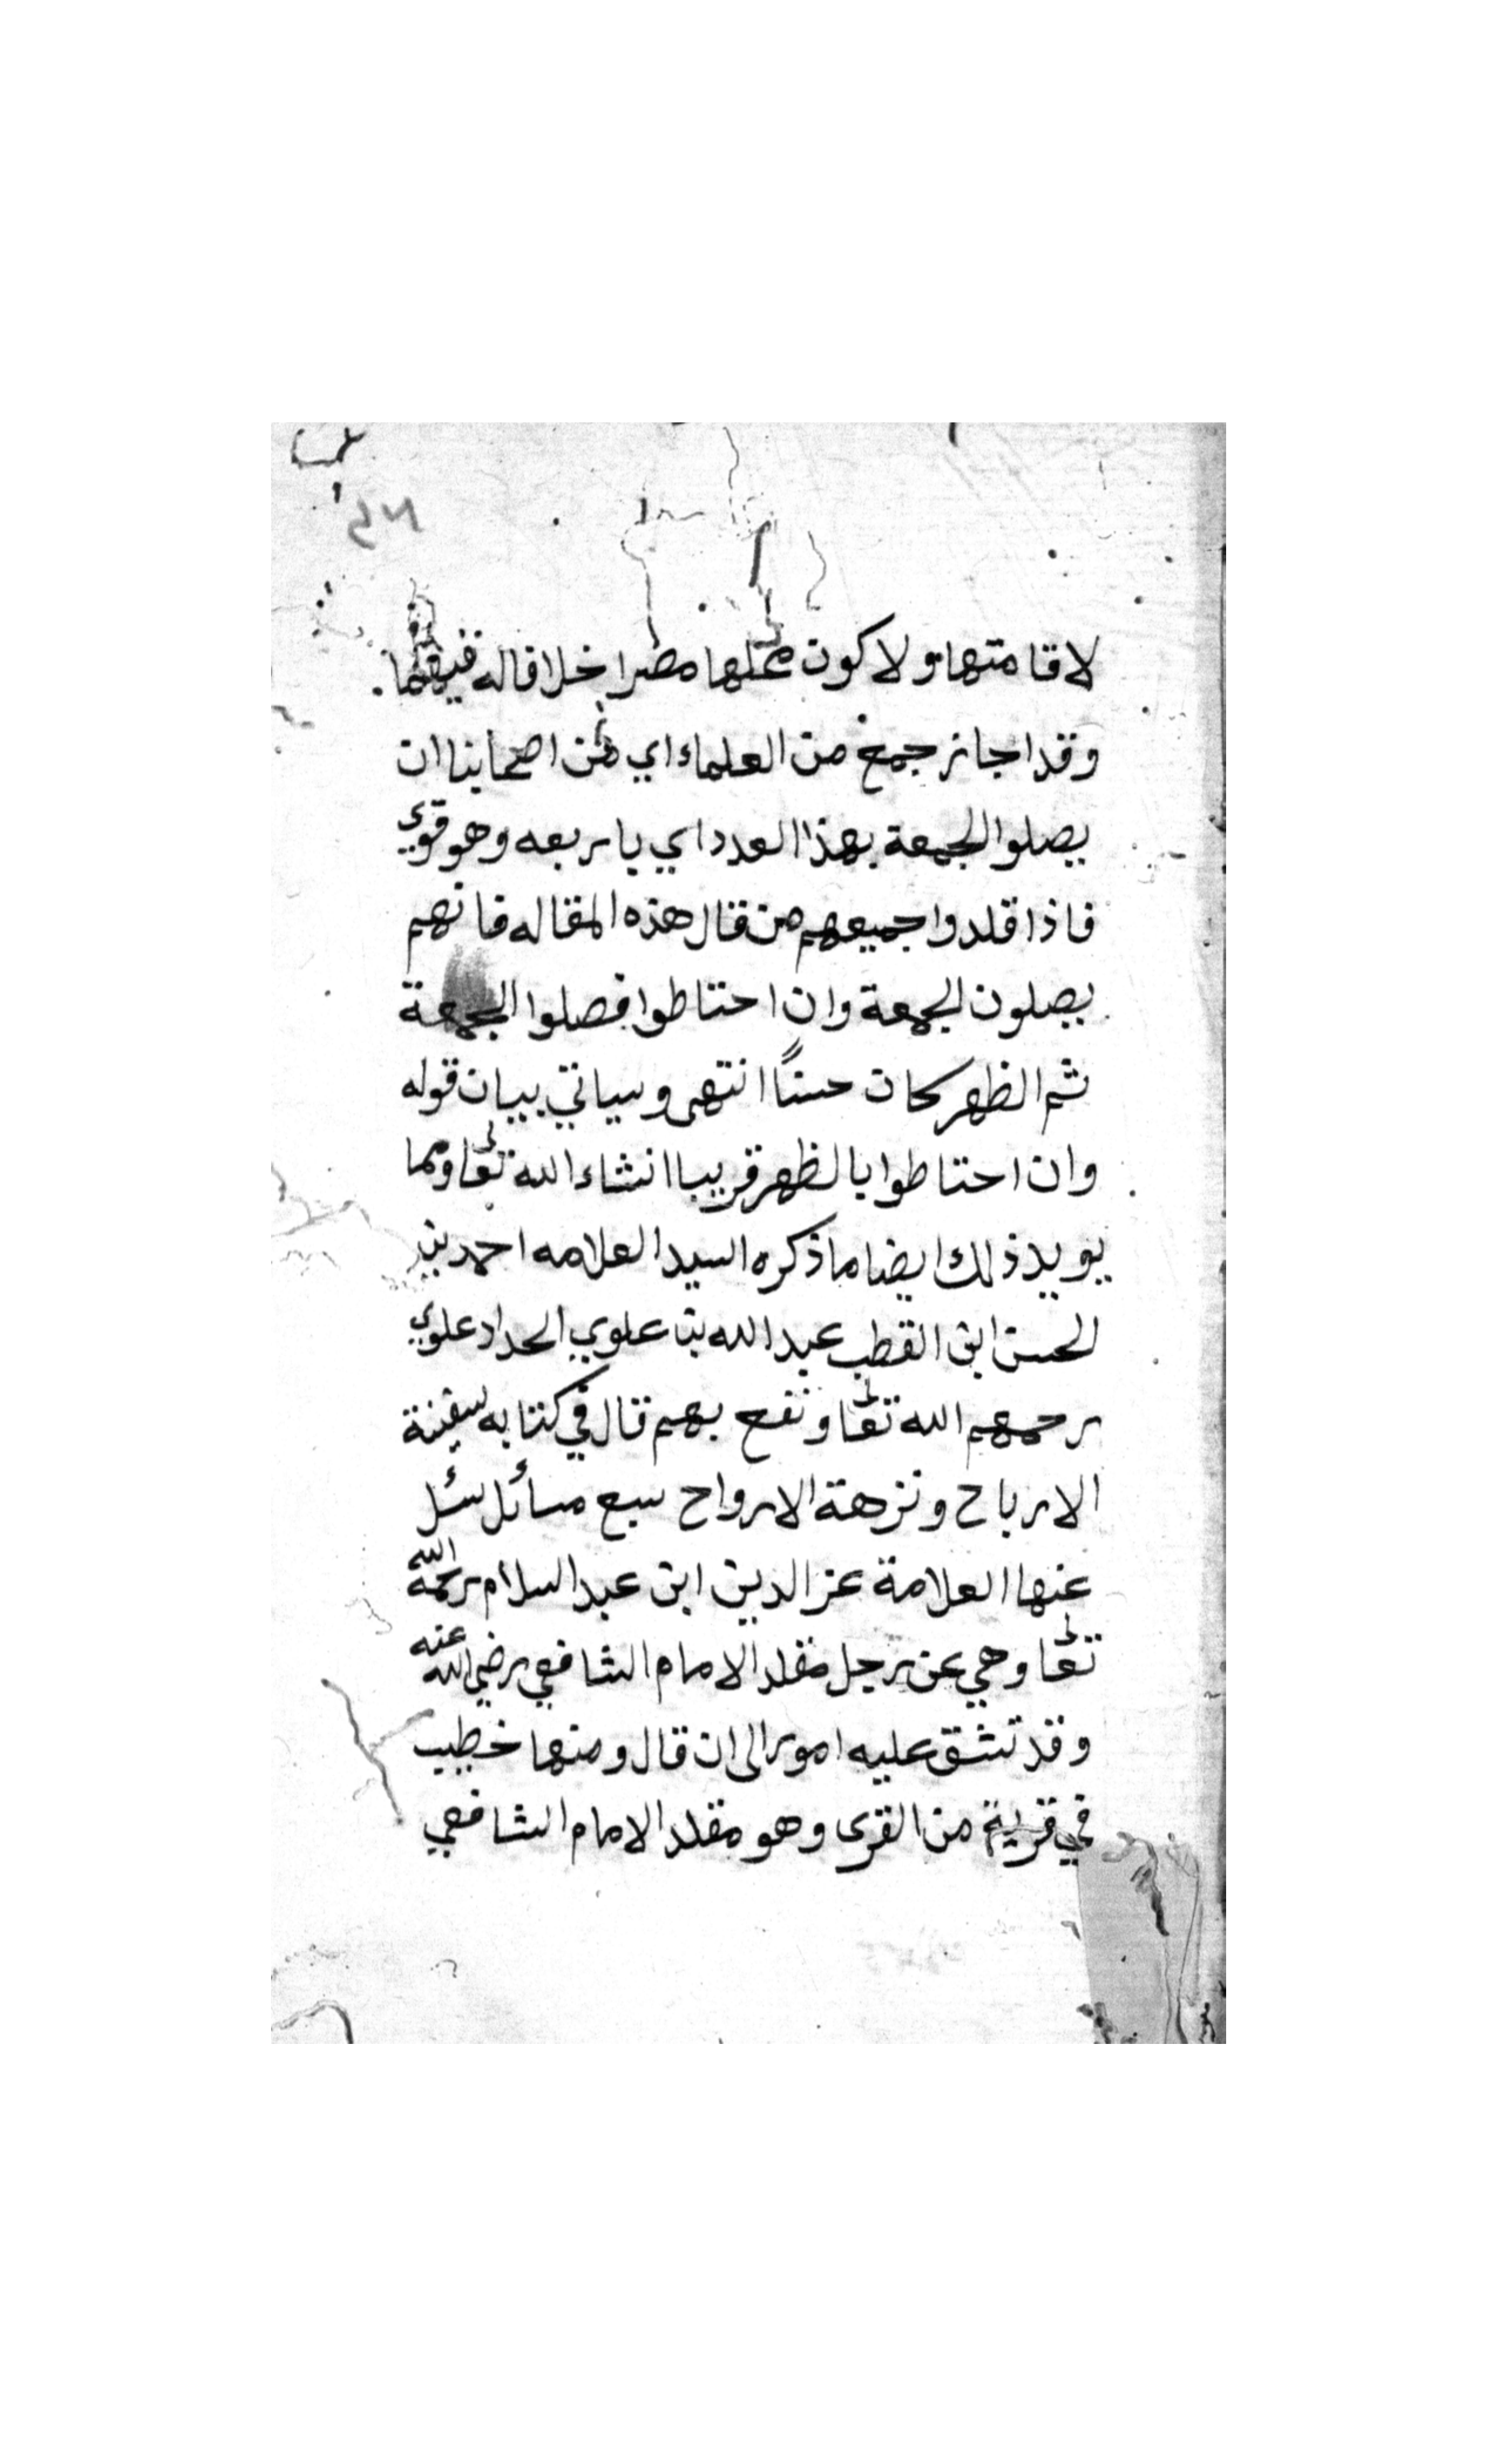 لاقامتها ولا كون محلها مصرا خلافاله فيهما.
وقد اجاز جمع من العلماء اي من اصحابنا ان
يصلوا الجمعة بهذا العدد اي باربعه وهو قوي
فاذا قلدوا جميعهم من قال هذه المقاله فانهم
يصلون الجمعة وان احتاطوا فصلوا الجمعة
ثم الظهر كان حسنًا انتهى وسياتي بيان قوله
وان احتاطوا بالظهر قريبا انشاء الله تعالى ومما
يويد ذلك ايضا ما ذكره السيد العلامه احمد بن
الحسن ابن القطب عبد الله بن علوي الحداد علوي
رحمهم الله تعالى ونفع بهم قال في كتابه سفينة
الارباح ونزهة الارواح سبع مسائل سئل
عنها العلامة عز الدين ابن عبد السلام رحمه الله
تعالى وهي عن رجل مقلد الامام الشافعي رضي الله عنه
وقد تشق عليه امور الى ان قال ومنها خطيب
في قرية من القرى وهو مقلد الامام الشافعي